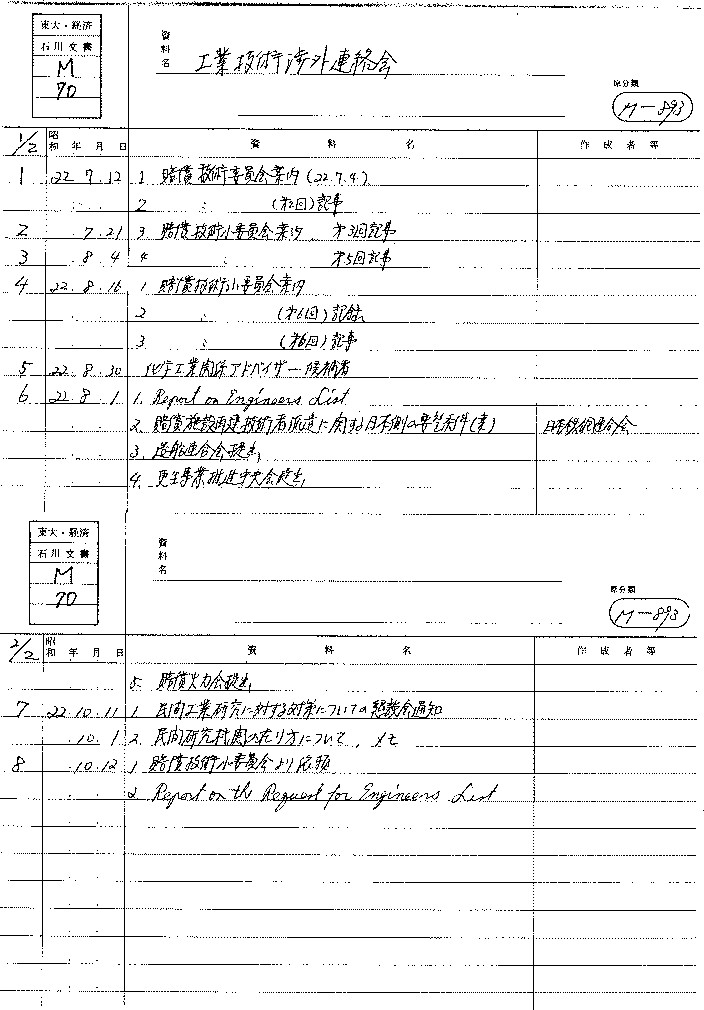 東大・経済
石川文書
M
70
資料名 工業技術渉外連絡会
原分類
M-893
1/2 昭和 年 月 日 資料名 作成者等
1 22 7.12 1 賠償技術委員会案内(22.7.9.)
2 〃 (第2回)記事
2 7.21 3 賠償技術小委員会案内 第3回記事
3 8 4 4 第5回記事
4 22.8.16 1 賠償技術小委員会案内
2 〃 (第6回)記録
3 〃 (第6回)記事
5 22 8.30 化学工業関係アドバイザー候補者
6 22.8 1 1. Report on Engineers List
2. 賠償施設再建技術者派遣に関する日本側の要望条件(案)
3. 造船連合会提出
4. 更生事業推進中央会提出
東大・経済
石川文書
M
70
資料名
原分類
M-893
2/2 昭和 年 月 日 資料名 作成者等
5. 賠償火力会提出
7 22.10.11 1. 民間工業研究に対する対策についての懇談会通知
.10.1 2. 民間研究機関の在り方について、メモ
8 .10.12 1 賠償技術小委員会より依頼
2 Report on the Request for Engineers List